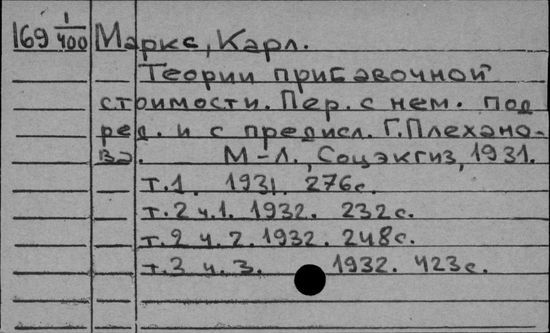 169 1/400 Маркс, Карл.
Теории прибавочной
стоимости. Пер. с нем. под
ред. и с предисл. Г. Плехано-
ва. М-Л., Соцэкгиз, 1931.
т.1. 1931. 276с.
т.2 ч.1. 1932. 232с.
т.2 ч.2. 1932. 248с.
т.3 ч.3. 1932. 423с.